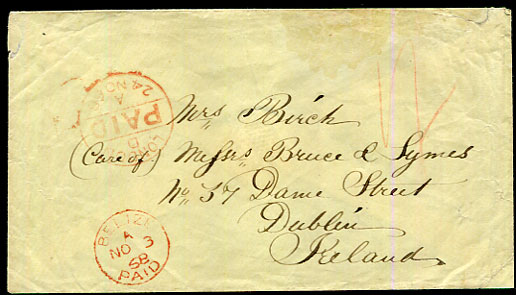 LONDON
PAID
A
24 NO
Mrs Birch
(Care of) Messrs Bruce & Symes
No 57 Dame Street
Dublin
Ireland
BELIZE
A
NO 3
68
PAID